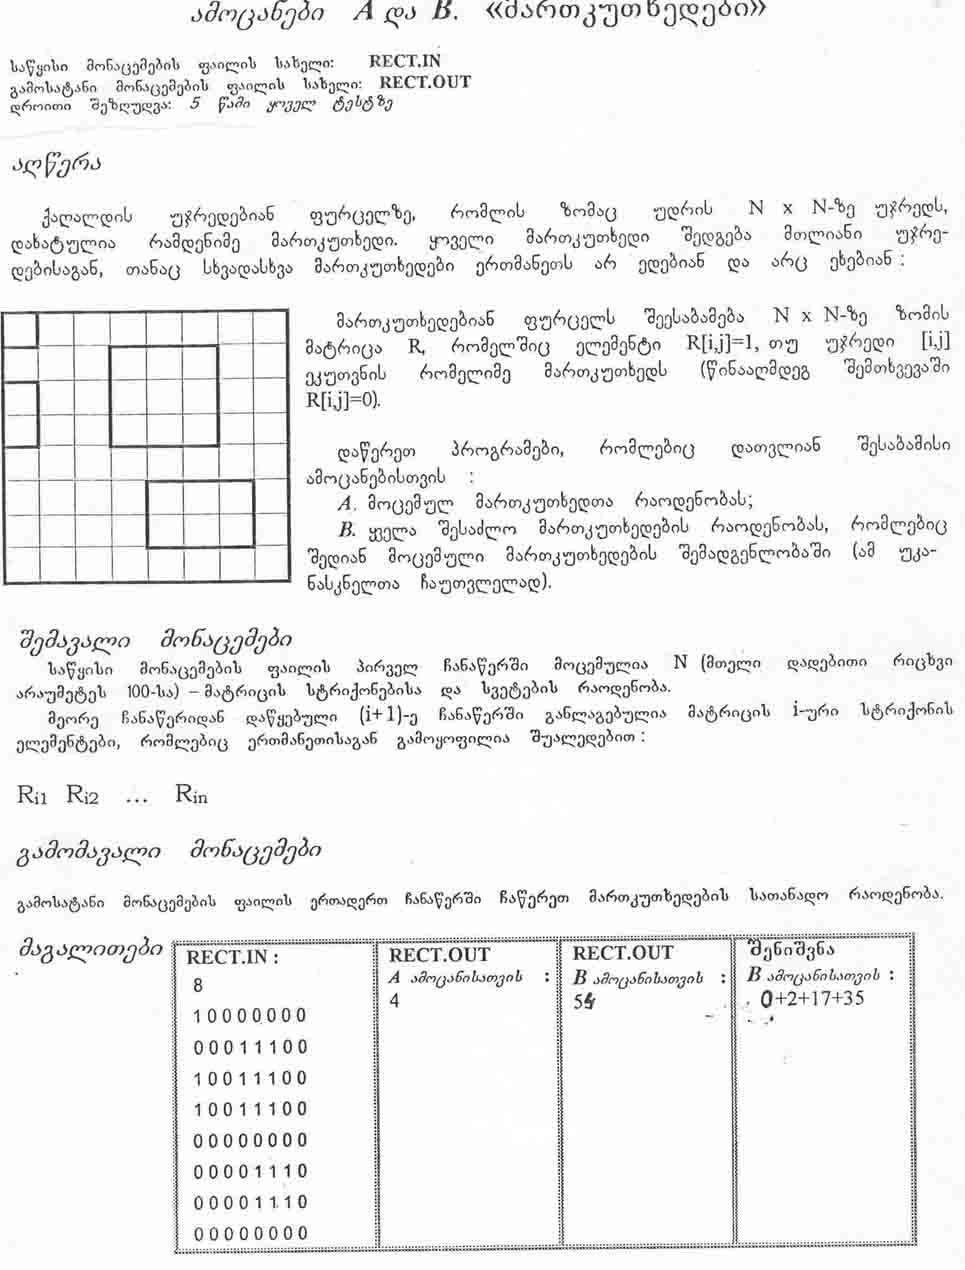 ამოცანები A და B. «მართკუთხედები»
საწყისი მონაცემების ფაილის სახელი: RECT.IN
გამოსატანი მონაცემების ფაილის სახელი: RECT.OUT
დროითი შეზღუდვა: 5 წამი ყოველ ტესტზე
აღწერა
ქაღალდის უჯრედებიან ფურცელზე, რომლის ზომაც უდრის N x N-ზე უჯრედს,
დახატულია რამდენიმე მართკუთხედი. ყოველი მართკუთხედი შედგება მთლიანი უჯრე-
დებისაგან, თანაც სხვადასხვა მართკუთხედები ერთმანეთს არ ედებიან და არც ეხებიან :
მართკუთხედებიან ფურცელს შეესაბამება N x N-ზე ზომის
მატრიცა R, რომელშიც ელემენტი R[i,j]=1, თუ უჯრედი [i,j]
ეკუთვნის რომელიმე მართკუთხედს (წინააღმდეგ შემთხვევაში
R[i,j]=0).
დაწერეთ პროგრამები, რომლებიც დათვლიან შესაბამისი
ამოცანებისთვის :
A. მოცემულ მართკუთხედთა რაოდენობას;
B. ყველა შესაძლო მართკუთხედების რაოდენობას, რომლებიც
შედიან მოცემული მართკუთხედების შემადგენლობაში (ამ უკა-
ნასკნელთა ჩაუთვლელად).
შემავალი მონაცემები
საწყისი მონაცემების ფაილის პირველ ჩანაწერში მოცემულია N (მთელი დადებითი რიცხვი
არაუმეტეს 100-სა) – მატრიცის სტრიქონებისა და სვეტების რაოდენობა.
მეორე ჩანაწერიდან დაწყებული (i+1)-ე ჩანაწერში განლაგებულია მატრიცის i-ური სტრიქონის
ელემენტები, რომლებიც ერთმანეთისაგან გამოყოფილია შუალედებით :
Ri1 Ri2 ... Rin
გამომავალი მონაცემები
გამოსატანი მონაცემების ფაილის ერთადერთ ჩანაწერში ჩაწერეთ მართკუთხედების სათანადო რაოდენობა.
მაგალითები
RECT.IN :
8
1 0 0 0 0 0 0 0
0 0 0 1 1 1 0 0
1 0 0 1 1 1 0 0
1 0 0 1 1 1 0 0
0 0 0 0 0 0 0 0
0 0 0 0 1 1 1 0
0 0 0 0 1 1 1 0
0 0 0 0 0 0 0 0
RECT.OUT
A ამოცანისათვის :
4
RECT.OUT
B ამოცანისათვის :
54
შენიშვნა
B ამოცანისათვის :
0+2+17+35